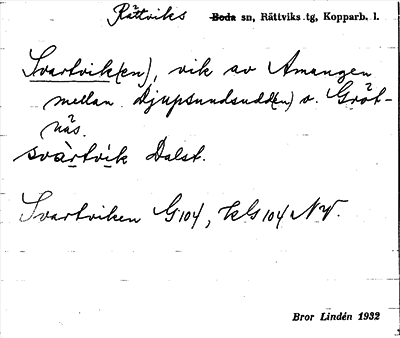 Rättviks Boda sn, Rättviks tg, Kopparb. l.
Svartvik(en), vik av Amungen
mellan Djupsundsudd(en) o. Gröt-
näs.
svàrtvik Dalst.
Svartviken G104, kls 104 NV.
Bror Lindén 1932